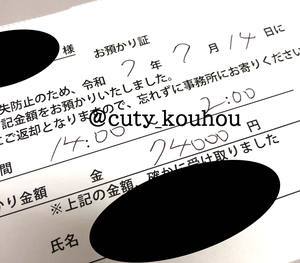 様 お預かり証
失防止のため、令和 7 年 7 月 14 日に
記金額をお預かりいたしました。
ご返却となりますので、忘れずに事務所にお寄りください
間 14:00 2:00
@cuty_kouhou
かり金額 金 74000 円
※上記の金額、確かに受け取りました
氏名